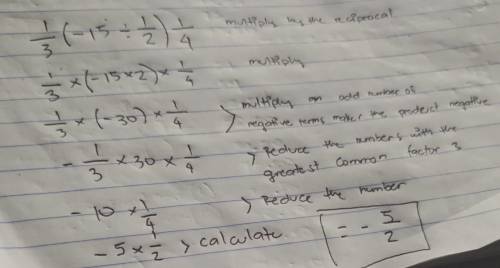 1/3 (-15 ÷ 1/2) 1/4 multiply by the reciprocal
1/3 × (-15 × 2) × 1/4 multiply
1/3 × (-30) × 1/4 > multiply an odd number of
negative terms makes the product negative
- 1/3 × 30 × 1/4 > Reduce the numbers with the
greatest common factor 3
- 10 × 1/4 > Reduce the number
- 5 × 1/2 > calculate = - 5/2